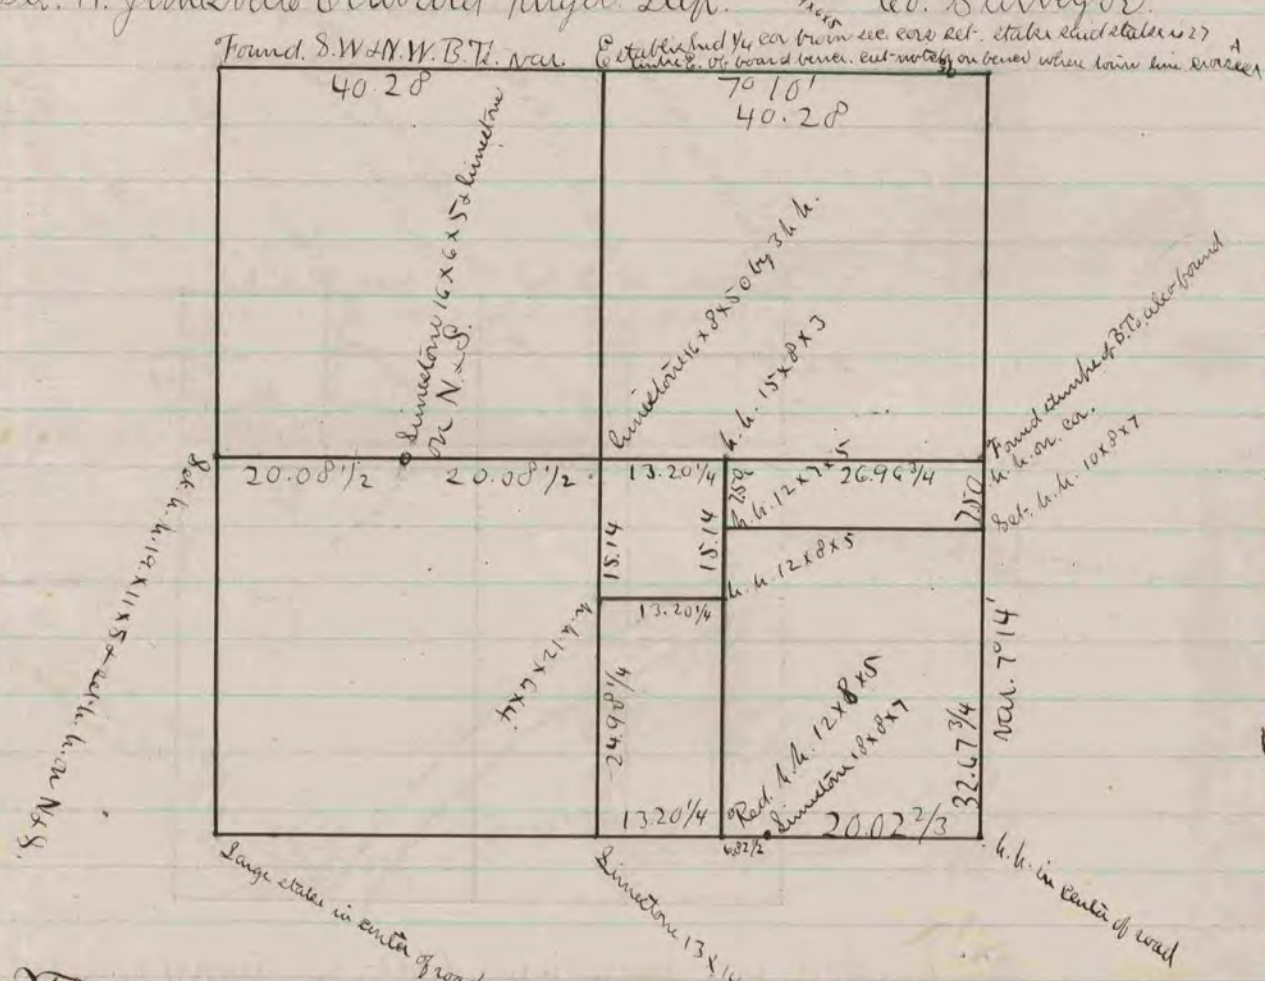 Co. Surveyor.
Found. S.W & N.W. B.Ts. var.
Established 1/4 cor from sec cors set. stake said stake is 27
of board fence. cut notch on fence where town line crosses
40.28
7° 10'
40.28
Limestone 16 x 6 x 5 & limestone
on N. & S.
Limestone 16 x 8 x 5 by 3 h.h.
h.h. 15 x 8 x 3
Found stumps of B.Ts. also found
h.h. on. cor.
Set. h.h. 10 x 8 x 7
20.08 1/2
20.08 1/2
13.20 1/4
26.96 3/4
7.50
h.h. 12 x 7 x 5
7.50
Set. h.h. 19 x 11 x 5 & set. h.h. on N & S.
15.14
15.14
h.h. 12 x 8 x 5
13.20 1/4
h.h. 12 x 6 x 4.
24.98 1/4
Red. h.h. 12 x 8 x 5
Limestone 18 x 8 x 7
32.67 3/4
var. 7° 14'
13.20 1/4
20.02 2/3
Large stake in center of road
Limestone 13 x 14
h.h. in center of road